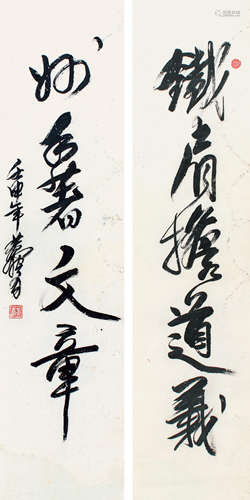 鐵肩擔道義
妙手著文章
壬申年